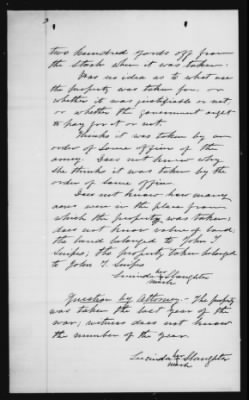 two hundred yards off from
the stack when it was taken.
Has no idea as to what use
the property was taken for or
whether it was justifiable or not,
or whether the government ought
to pay for it or not.
Thinks it was taken by an
order of some officer of the
army. Does not know why
she thinks it was taken by the
order of some officer.
Does not know how many
acres were in the place from
which the property was taken;
does not know value of land;
the land belonged to John T.
the property taken belonged
to John T.
Lucinda her Slaughter
mark
Question by Attorney - The property
was taken the last year of the
war; witness does not know
the number of the year.
Lucinda her Slaughter
mark